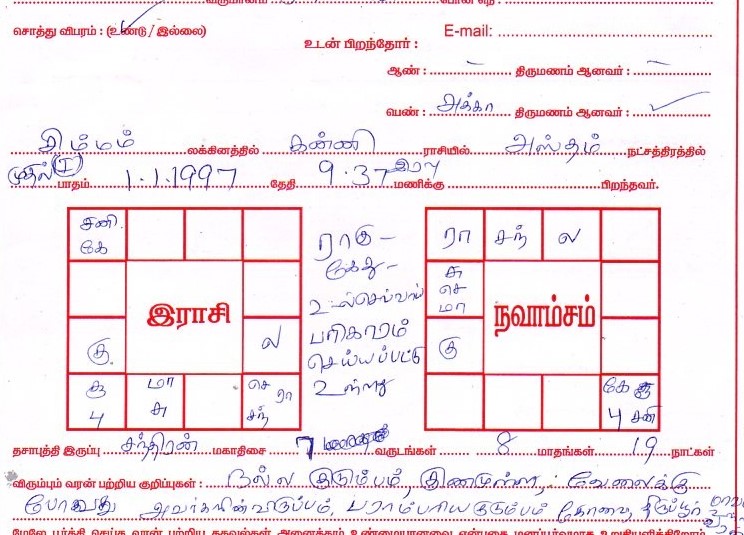 சொத்து விபரம் : (உண்டு / இல்லை)
E-mail:
உடன் பிறந்தோர் :
ஆண் : – திருமணம் ஆனவர் : –
பெண் : அக்கா திருமணம் ஆனவர் :
சிம்மம் லக்கினத்தில் கன்னி ராசியில் அஸ்தம் நட்சத்திரத்தில்
முதல் (I) பாதம் 1.1.1997 தேதி 9.37 இரவு மணிக்கு பிறந்தவர்.
சனி
கே
கு
சூ
பு
மா
சு
ல
செ
ரா
சந்
இராசி
ராகு –
கேது –
செய்யப்பட்டு
உள்ளது
ரா
சந்
ல
சு
செ
மா
கு
கே
சூ
பு சனி
நவாம்சம்
தசாபுத்தி இருப்பு சந்திரன் மகாதிசை 7 வருடங்கள் 8 மாதங்கள் 19 நாட்கள்
விரும்பும் வரன் பற்றிய குறிப்புகள் : நல்ல குடும்பம், குணமுள்ள, வேலைக்கு
போவது அவர்களின் விருப்பம், பாரம்பரிய குடும்பம் கோவை, திருப்பூர்